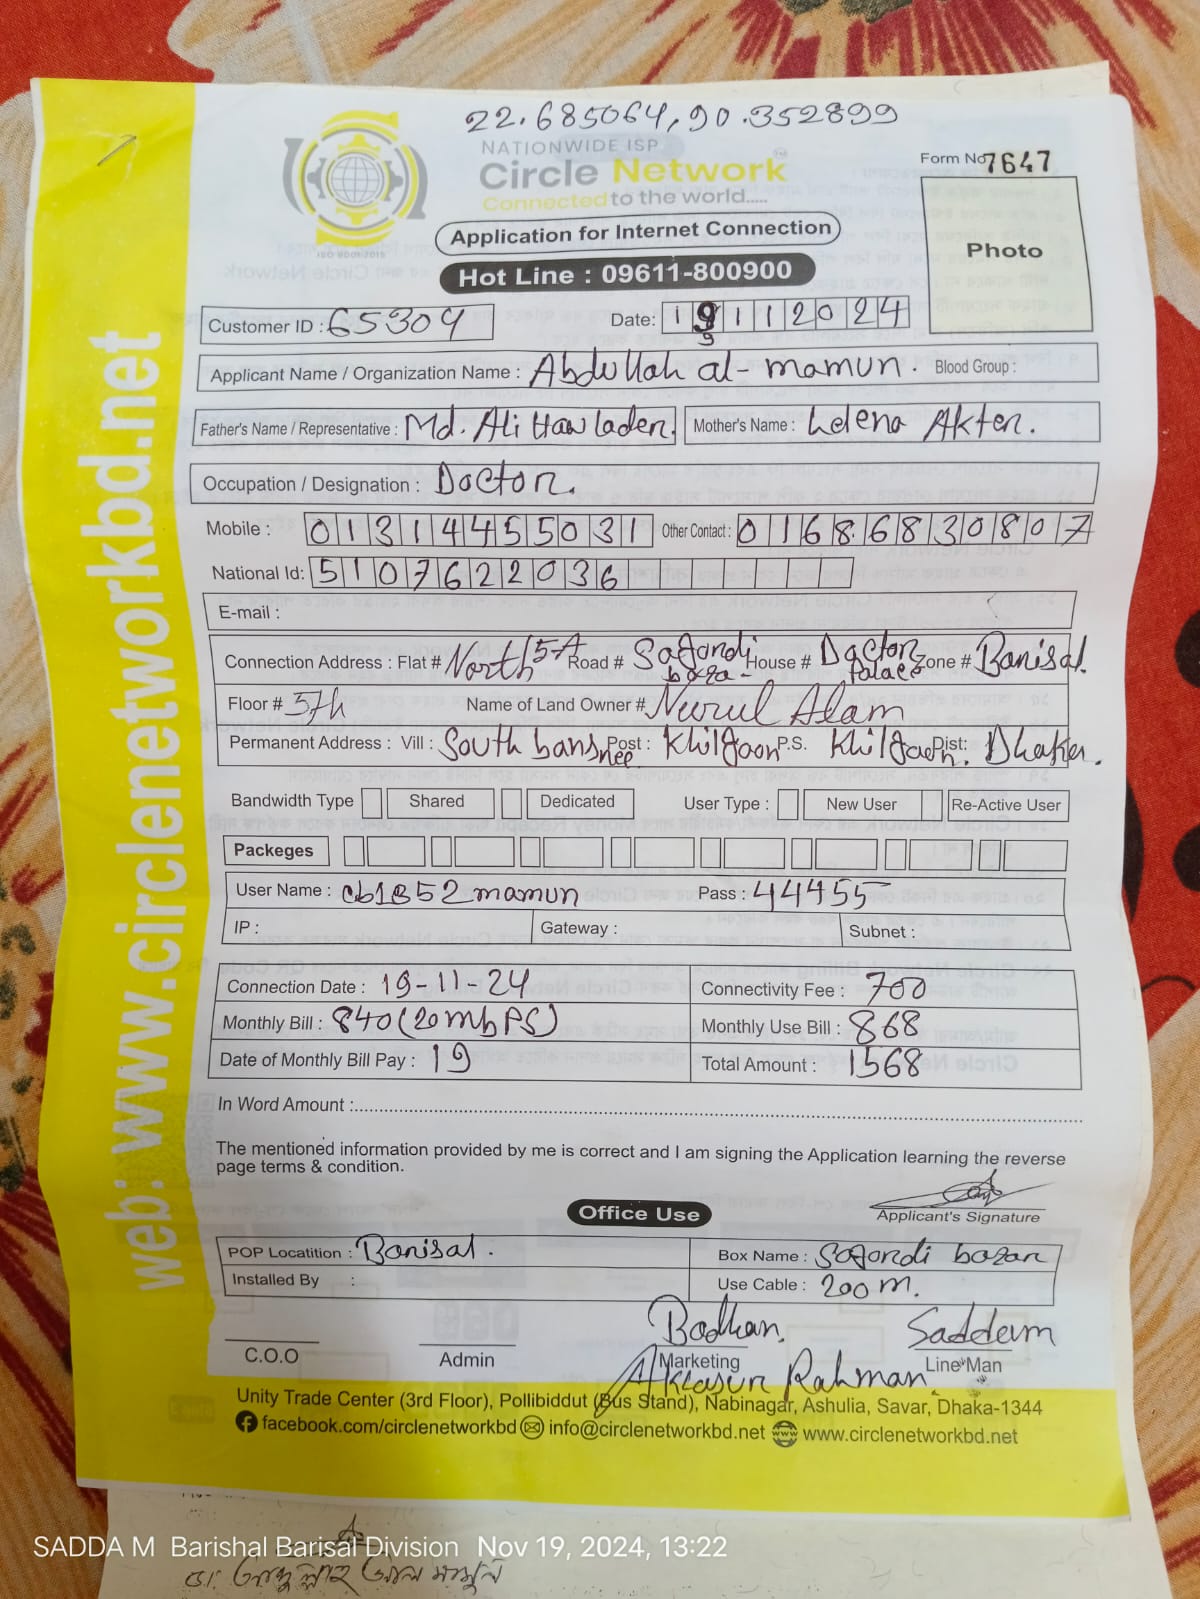 22.685064, 90.352899
NATIONWIDE ISP
Circle Network™
Connected to the world.....
ISO 9001:2015
Form No 7647
Photo
Application for Internet Connection
Hot Line : 09611-800900
Customer ID : 65304
Date: 19112024
Applicant Name / Organization Name : Abdullah al-mamun. Blood Group :
Father's Name / Representative : Md. Ali Hawlader. Mother's Name : Helena Akter.
Occupation / Designation : Doctor.
Mobile : 01314455031 Other Contact : 01686830807
National Id: 5107622036
E-mail :
Connection Address : Flat # North 5-A Road # Sagordi bazar House # Doctor palace Zone # Barisal.
Floor # 5th Name of Land Owner # Nurul Alam
Permanent Address : Vill : South Post : Khilgaon P.S. Khilgaon. Dist: Dhaka.
Bandwidth Type Shared Dedicated User Type : New User Re-Active User
Packeges
User Name : cb1352mamun Pass : 44455
IP : Gateway : Subnet :
Connection Date : 19-11-24 Connectivity Fee : 700
Monthly Bill : 840 (20mbPS) Monthly Use Bill : 868
Date of Monthly Bill Pay : 19 Total Amount : 1568
In Word Amount :
The mentioned information provided by me is correct and I am signing the Application learning the reverse
page terms & condition.
Applicant's Signature
Office Use
POP Locatition : Barisal. Box Name : Sagordi bazar
Installed By : Use Cable : 200 m.
Badhan. Saddam
C.O.O Admin Marketing Line Man
Rahman
Unity Trade Center (3rd Floor), Pollibiddut (Bus Stand), Nabinagar, Ashulia, Savar, Dhaka-1344
facebook.com/circlenetworkbd info@circlenetworkbd.net www.circlenetworkbd.net
web: www.circlenetworkbd.net
SADDA M Barishal Barisal Division Nov 19, 2024, 13:22
ডা. আব্দুল্লাহ আল মামুন